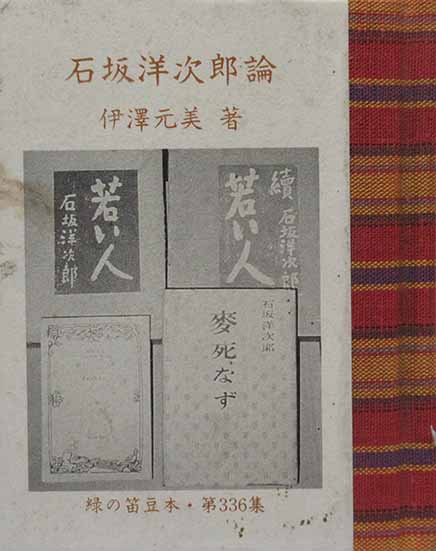 石坂洋次郎論
伊澤元美 著
若い人
石坂洋次郎
續 石坂洋次郎
若い人
石坂洋次郎
麥死なず
緑の笛豆本・第336集